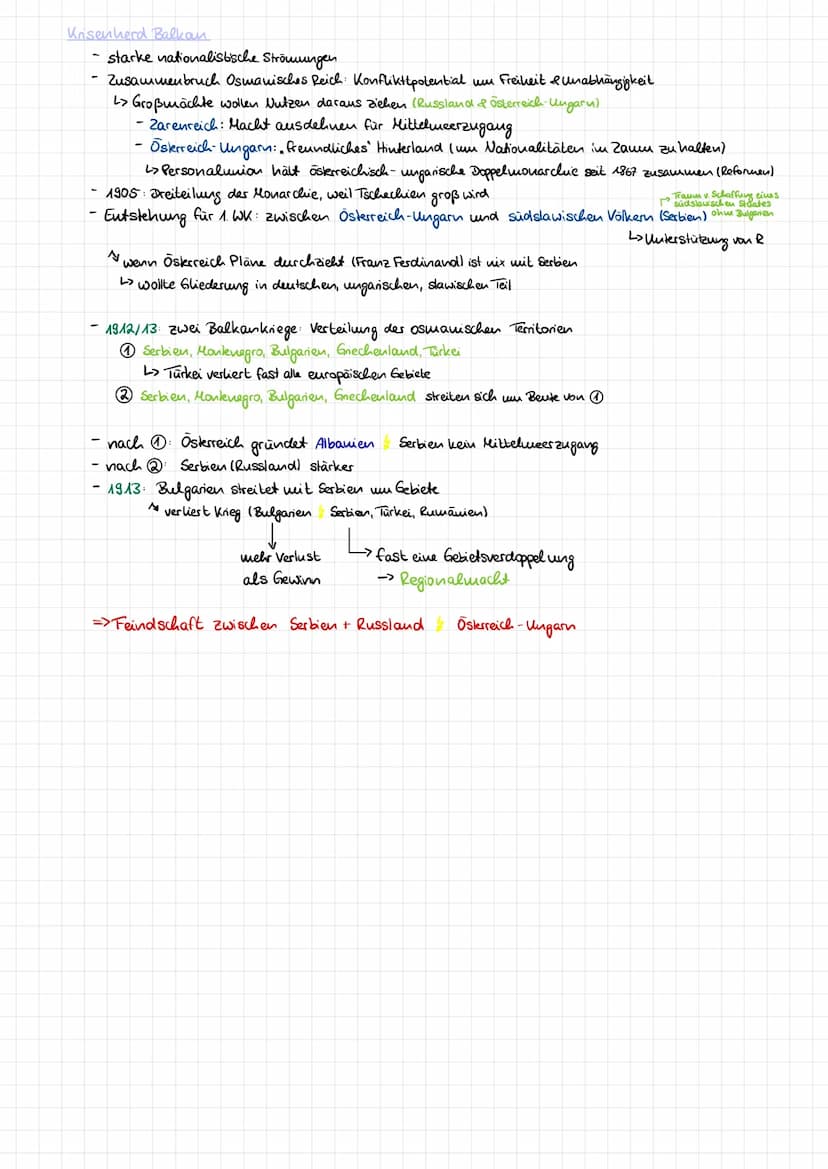 Krisenherd Balkan
- starke nationalistische Strömungen
- Zusammenbruch Osmanisches Reich: Konfliktpotential um Freiheit & Unabhängigkeit
↳ Großmächte wollen Nutzen daraus ziehen (Russland & Österreich-Ungarn)
- Zarenreich: Macht ausdehnen für Mittelmeerzugang
- Österreich-Ungarn: „freundliches" Hinterland (um Nationalitäten im Zaum zu halten)
↳ Personalunion hält österreichisch-ungarische Doppelmonarchie seit 1867 zusammen (Reformen)
- 1905: Dreiteilung der Monarchie, weil Tschechien groß wird
- Entstehung für 1. WK: zwischen Österreich-Ungarn und südslawischen Völkern (Serbien)
↱ Traum v. Schaffung eines
südslawischen Staates
ohne Bulgarien
↳ Unterstützung von R
↘ wenn Österreich Pläne durchzieht (Franz Ferdinand) ist nix mit Serbien
↳ wollte Gliederung in deutschen, ungarischen, slawischen Teil
- 1912/13: zwei Balkankriege: Verteilung der osmanischen Territorien
① Serbien, Montenegro, Bulgarien, Griechenland, Türkei
↳ Türkei verliert fast alle europäischen Gebiete
② Serbien, Montenegro, Bulgarien, Griechenland streiten sich um Beute von ①
- nach ①: Österreich gründet Albanien ⚡ Serbien kein Mittelmeerzugang
- nach ②: Serbien (Russland) stärker
- 1913: Bulgarien streitet mit Serbien um Gebiete
↘ verliert Krieg (Bulgarien ⚡ Serbien, Türkei, Rumänien)
mehr Verlust
als Gewinn
→ fast eine Gebietsverdoppelung
→ Regionalmacht
=> Feindschaft zwischen Serbien + Russland ⚡ Österreich-Ungarn